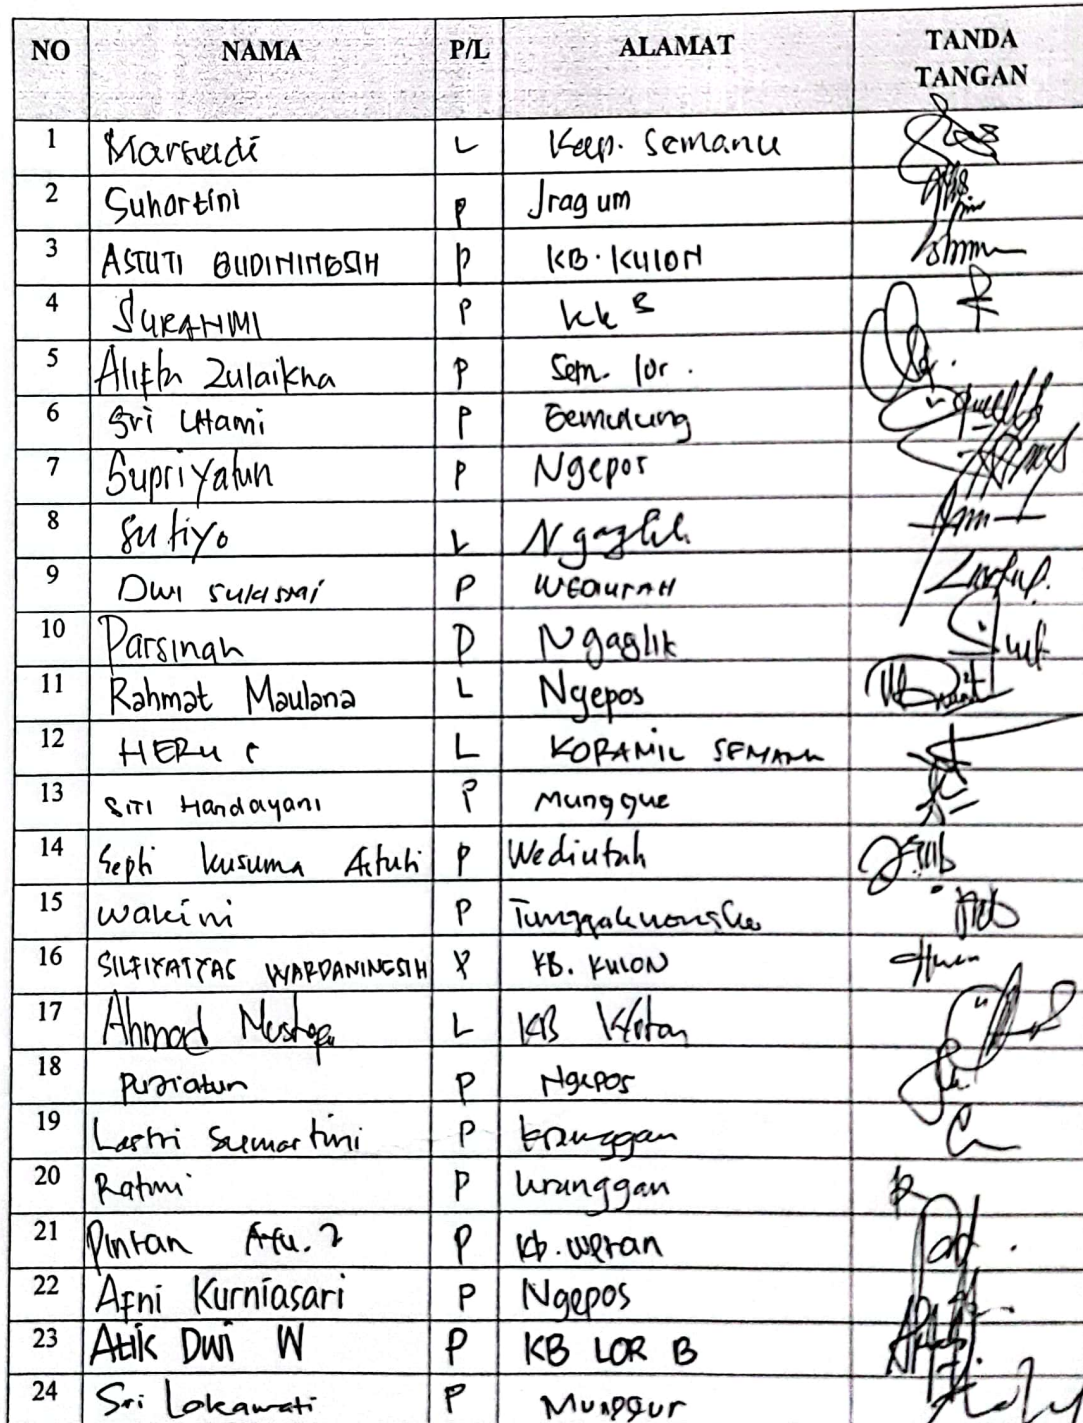 NO NAMA P/L ALAMAT TANDA TANGAN
1 Marsudi L Kep. Semanu
2 Suhartini P Jragum
3 ASTUTI BUDININGSIH P KB. KULON
4 SURANMI P KK B
5 Alifta Zulaikha P Sem. lor.
6 Sri Utami P Gemulung
7 Supriyatun P Ngepos
8 Sutiyo L Ngaglik
9 Dwi sulismi P WEDIUTAH
10 Parsinah P Ngaglik
11 Rahmat Maulana L Ngepos
12 HERU C L KORAMIL SEMANU
13 SITI Handayani P Munggue
14 Septi Kusuma Astuti P Wediutah
15 wakini P
16 SILFIYATYAS WARDANINGSIH P KB. KULON
17 Ahmad Mustopa L KB
18 P Ngepos
19 Lastri Sumartini P Kranggan
20 Ratmi P Kranggan
21 Pintan P Kb. wetan
22 Afni Kurniasari P Ngepos
23 Atik Dwi W P KB LOR B
24 Sri Lokawati P Munggur